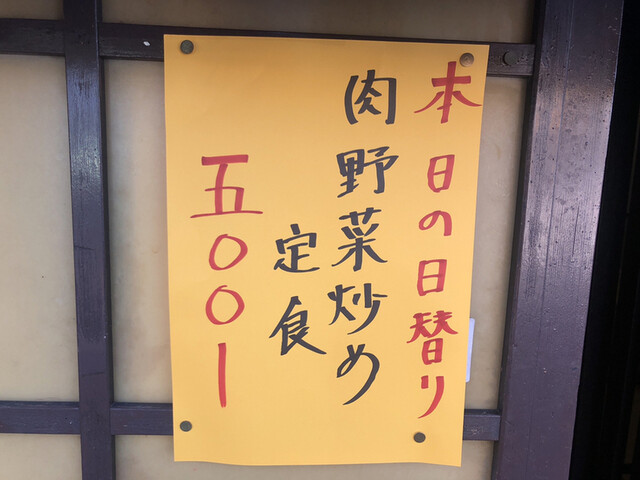 本日の日替り
肉野菜炒め
定食
五〇〇ー